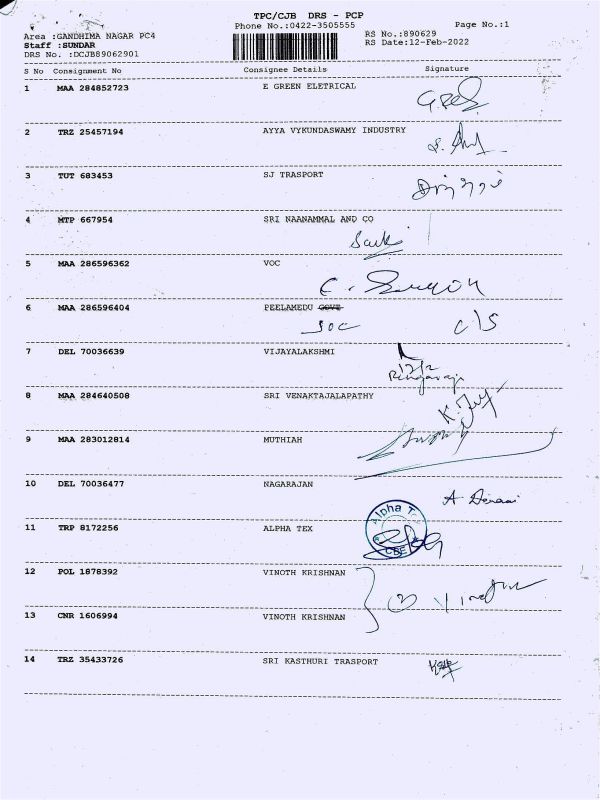 TPC/CJB DRS - PCP
Phone No.:0422-3505555
Page No.:1
Area :GANDHIMA NAGAR PC4
RS No.:890629
Staff :SUNDAR
RS Date:12-Feb-2022
DRS No. :DCJB89062901
S No Consignment No Consignee Details Signature
1 MAA 284852723 E GREEN ELETRICAL
2 TRZ 25457194 AYYA VYKUNDASWAMY INDUSTRY
3 TUT 683453 SJ TRASPORT
4 MTP 667954 SRI NAANAMMAL AND CO
5 MAA 286596362 VOC
6 MAA 286596404 PEELAMEDU GOVT
SOC c/s
7 DEL 70036639 VIJAYALAKSHMI
8 MAA 284640508 SRI VENAKTAJALAPATHY
9 MAA 283012814 MUTHIAH
10 DEL 70036477 NAGARAJAN
11 TRP 8172256 ALPHA TEX
Alpha Tex
CBE
12 POL 1878392 VINOTH KRISHNAN
13 CNR 1606994 VINOTH KRISHNAN
14 TRZ 35433726 SRI KASTHURI TRASPORT